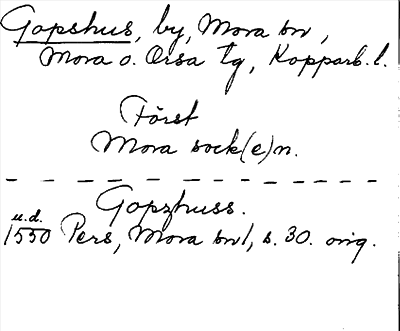 Gopshus, by, Mora sn,
Mora o. Orsa tg, Kopparb. l.
Först
Mora sock(e)n.
Gopzhuss.
u.d.
1550 Pers, Mora snl, s. 30. orig.